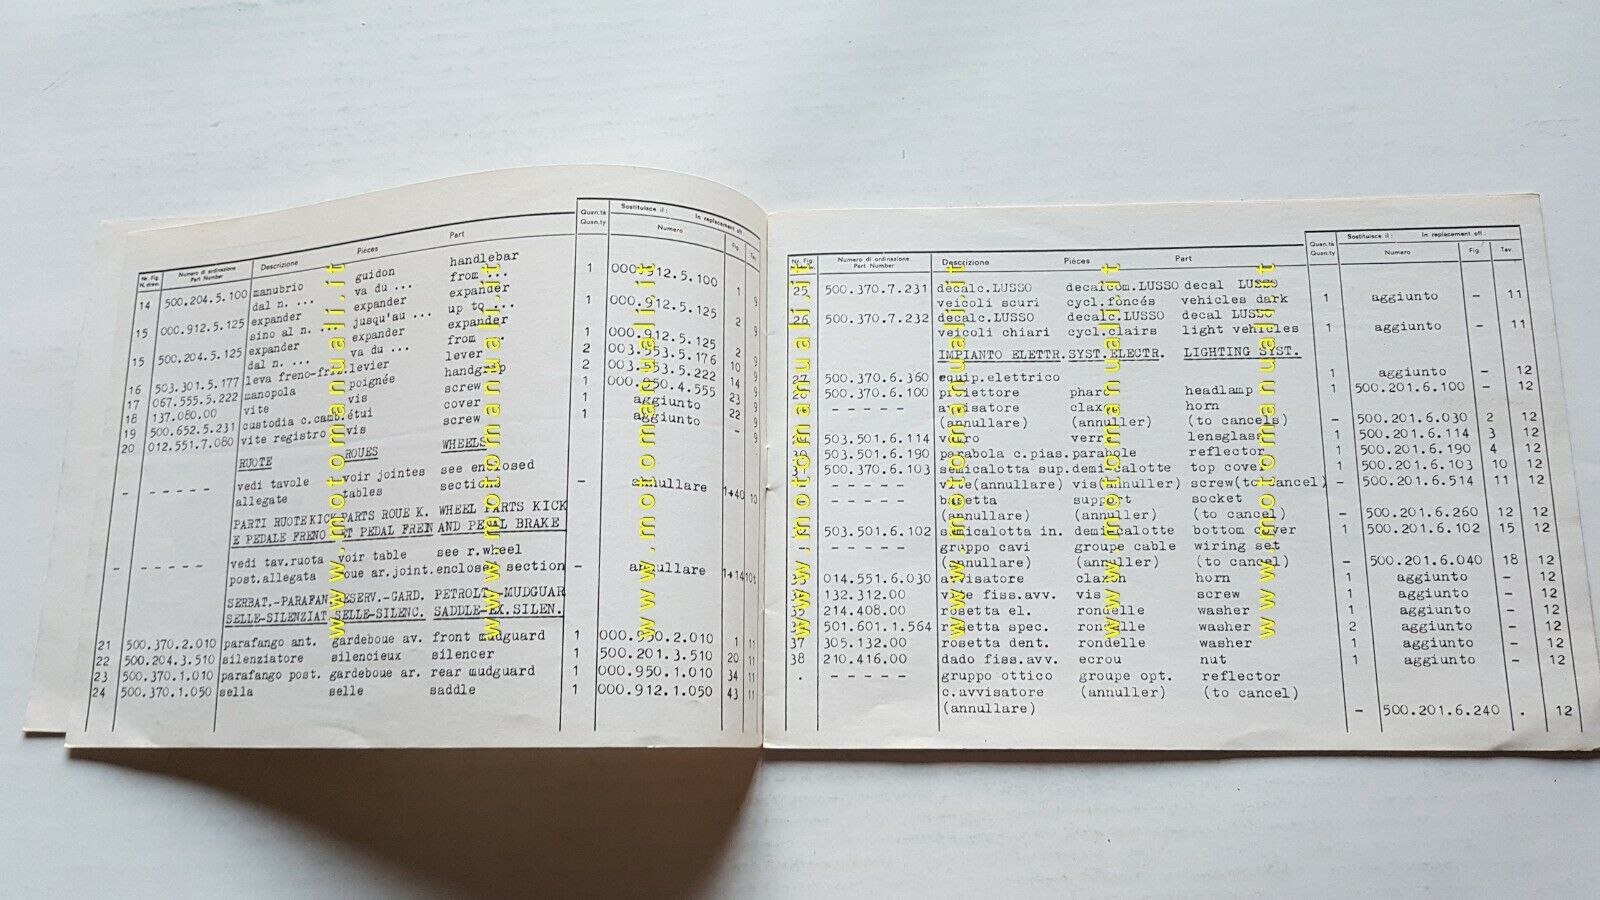 Nr. Fig. Numero di ordinazione Descrizione Pièces Part Quan.tà Sostituisce il: In replacement off:
N. draw. Part Number Quan.ty Numero Fig. Tav.
14 500.204.5.100 manubrio guidon handlebar 1 000.912.5.100 1 9
dal n. ... va du ... from ...
15 000.912.5.125 expander expander expander 1 000.912.5.125 2 9
sino al n. ... jusqu'au ... up to ...
15 500.204.5.125 expander expander expander 1 000.912.5.125 2 9
dal n. ... va du ... from ...
16 503.301.5.177 leva freno-friz. levier lever 2 003.553.5.176 10 9
17 067.555.5.222 manopola poignée handgrip 2 003.553.5.222 14 9
18 137.080.00 vite vis screw 1 000.950.4.555 23 9
19 500.652.5.231 custodia c.camb. étui cover 1 aggiunto 22 9
20 012.551.7.080 vite registro vis screw 1 aggiunto - 9
RUOTE ROUES WHEELS
- ----- vedi tavole voir jointes see enclosed - annullare 1+40 10
allegate tables section
PARTI RUOTE KICK PARTS ROUE K. WHEEL PARTS KICK
E PEDALE FRENO ET PEDAL FREIN AND PEDAL BRAKE
- ----- vedi tav.ruota voir table see r.wheel - annullare 1+14
post.allegata roue ar.joint. enclosed section
SERBAT.-PARAFAN. RESERV.-GARD. PETROLT.-MUDGUAR
SELLE-SILENZIAT SELLE-SILENC. SADDLE-EX.SILEN.
21 500.370.2.010 parafango ant. gardeboue av. front mudguard 1 000.950.2.010 1 11
22 500.204.3.510 silenziatore silencieux silencer 1 500.201.3.510 20 11
23 500.370.1.010 parafango post. gardeboue ar. rear mudguard 1 000.950.1.010 34 11
24 500.370.1.050 sella selle saddle 1 000.912.1.050 43 11
Nr. Fig. Numero di ordinazione Descrizione Pièces Part Quan.tà Sostituisce il: In replacement off:
Part Number Quan.ty Numero Fig. Tav.
25 500.370.7.231 decalc.LUSSO decalcom.LUSSO decal LUSSO
veicoli scuri cycl.foncés vehicles dark 1 aggiunto - 11
26 500.370.7.232 decalc.LUSSO decalc.LUSSO decal LUSSO
veicoli chiari cycl.clairs light vehicles 1 aggiunto - 11
IMPIANTO ELETTR. SYST.ELECTR. LIGHTING SYST.
27 500.370.6.360 equip.elettrico 1 aggiunto - 12
28 500.370.6.100 proiettore phare headlamp 1 500.201.6.100 - 12
----- avvisatore claxon horn
(annullare) (annuller) (to cancels) - 500.201.6.030 2 12
29 503.501.6.114 vetro verre lensglass 1 500.201.6.114 3 12
30 503.501.6.190 parabola c.pias. parabole reflector 1 500.201.6.190 4 12
31 500.370.6.103 semicalotta sup. demi-calotte top cover 1 500.201.6.103 10 12
----- vite(annullare) vis(annuller) screw(to cancel) - 500.201.6.514 11 12
----- basetta support socket
(annullare) (annuller) (to cancel) - 500.201.6.260 12 12
503.501.6.102 semicalotta in. demicalotte bottom cover 1 500.201.6.102 15 12
----- gruppo cavi groupe cable wiring set
(annullare) (annuller) (to cancel) - 500.201.6.040 18 12
33 014.551.6.030 avvisatore claxon horn 1 aggiunto - 12
132.312.00 vite fiss.avv. vis screw 1 aggiunto - 12
35 214.408.00 rosetta el. rondelle washer 1 aggiunto - 12
501.601.1.564 rosetta spec. rondelle washer 2 aggiunto - 12
37 305.132.00 rosetta dent. rondelle washer 1 aggiunto - 12
38 210.416.00 dado fiss.avv. ecrou nut 1 aggiunto - 12
. ----- gruppo ottico groupe opt. reflector
c.avvisatore (annuller) (to cancel)
(annullare) - 500.201.6.240 . 12
www.motomanuali.it
www.motomanuali.it
www.motomanuali.it
www.motomanuali.it
www.motomanuali.it
www.motomanuali.it
www.motomanuali.it